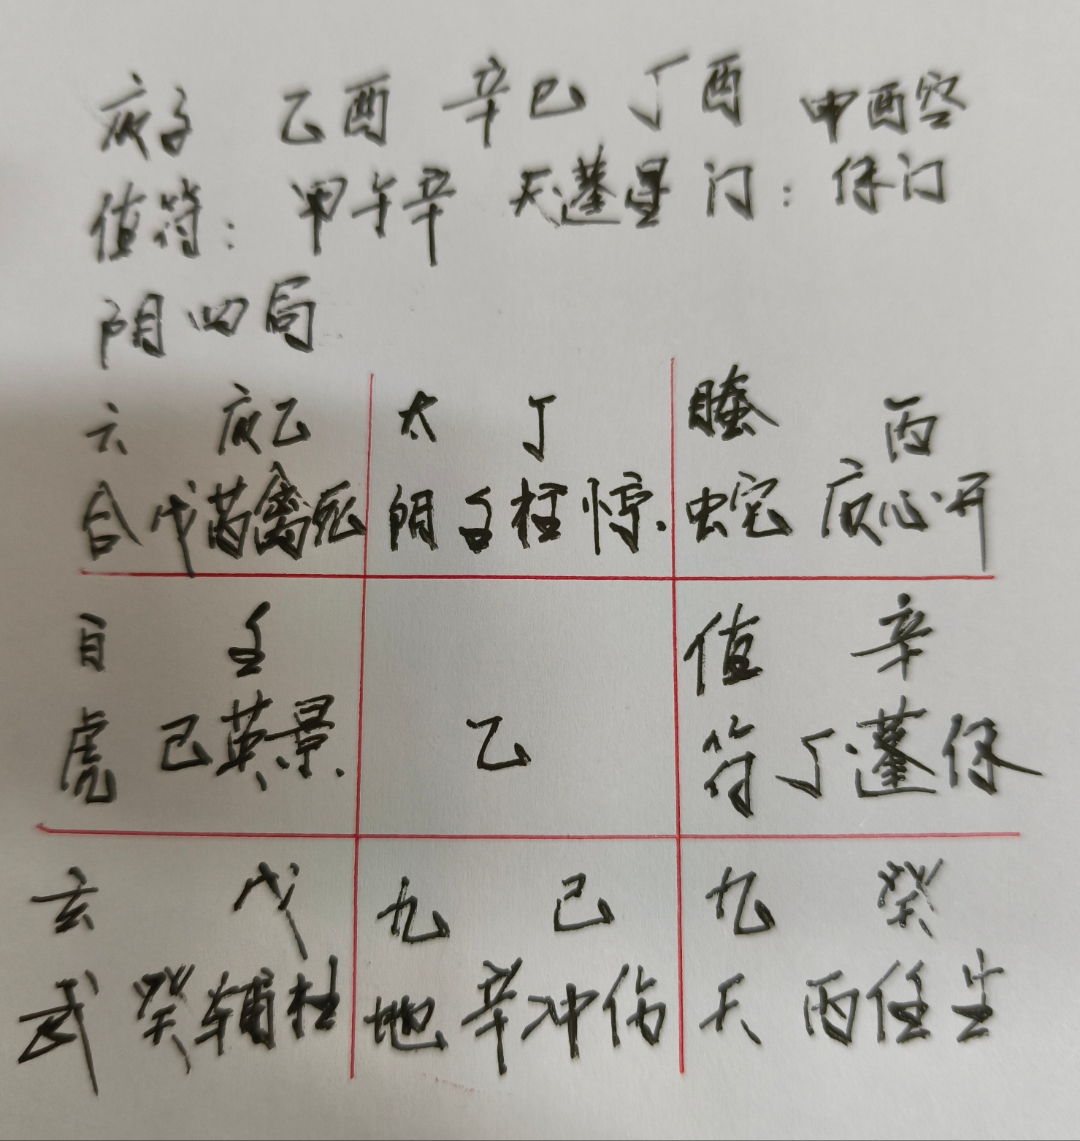 庚子 乙酉 辛巳 丁酉 申酉空
值符：甲午辛 天蓬星 门：休门
阴四局
六 庚乙
合 戊芮禽死
太 丁
阴 壬柱惊.
螣 丙
蛇 庚心开
白 壬
虎 己英景.
乙
值 辛
符 丁蓬休
玄 戊
武 癸辅杜
九 己
地 辛冲伤
九 癸
天 丙任生